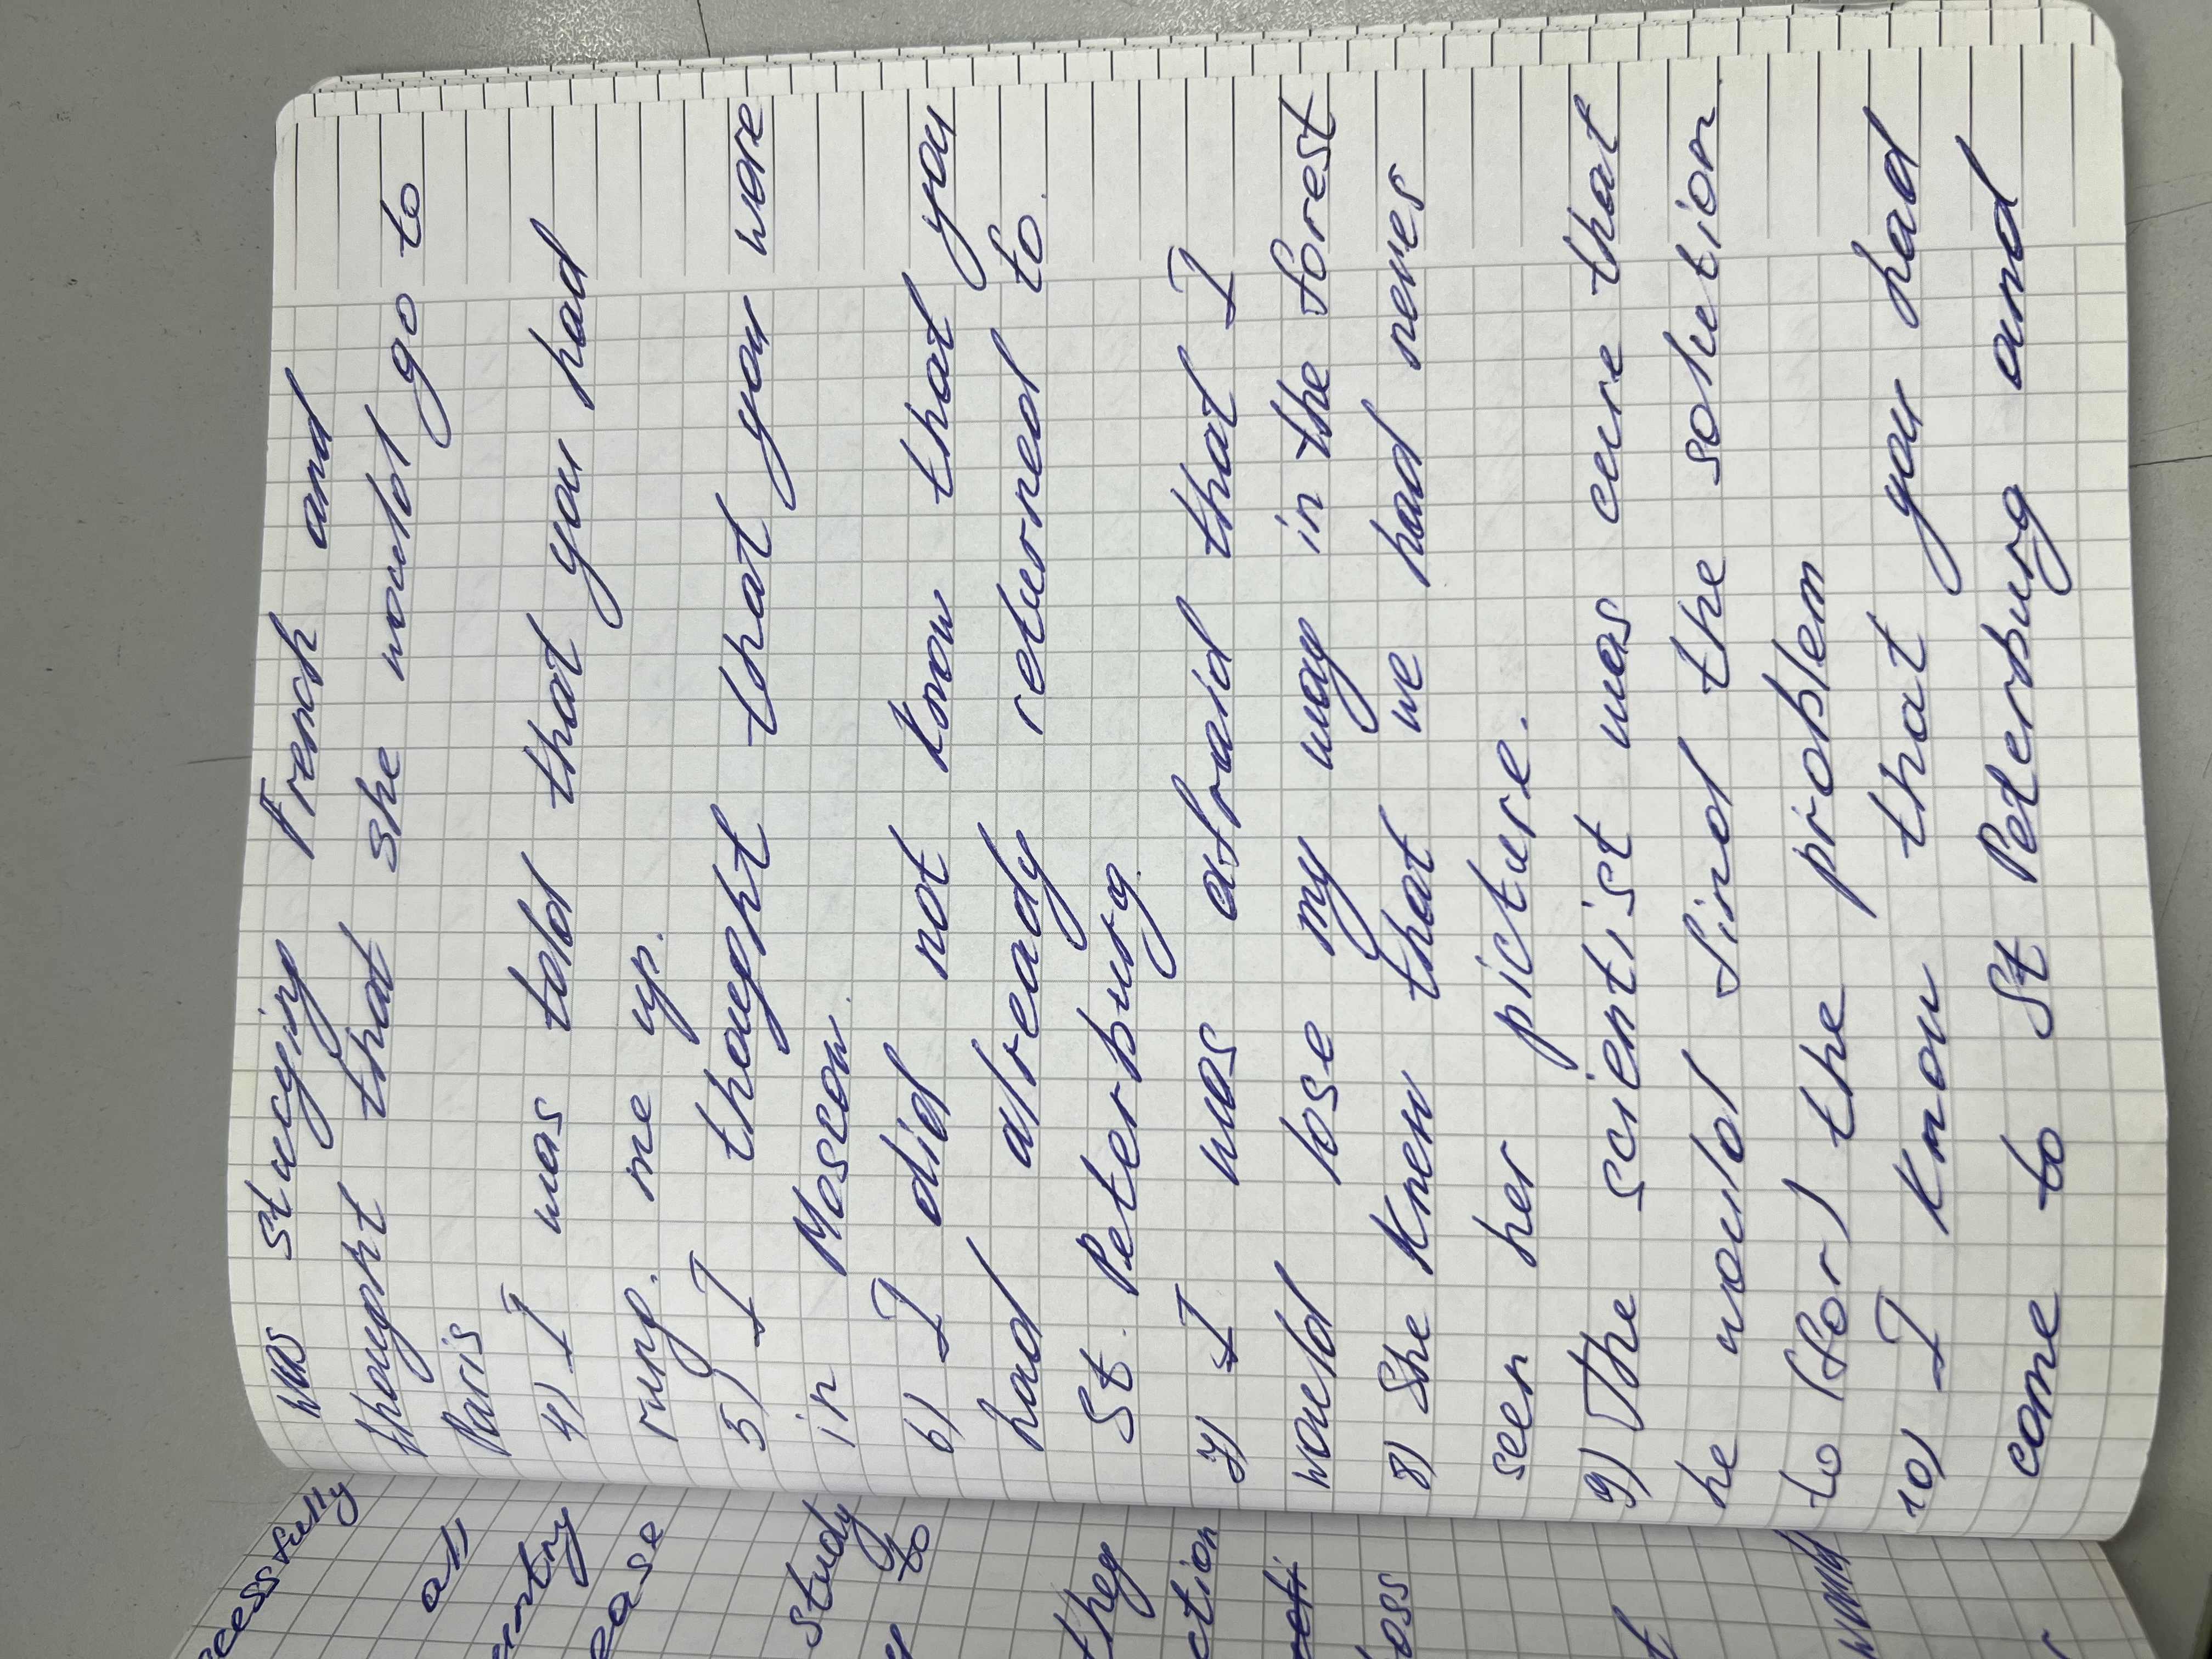 was studying French and
thought that she would go to
Paris
4) I was told that you had
rung me up.
5) I thought that you were
in Moscow.
6) I did not know that you
had already returned to
St. Peterburg.
7) I was afraid that I
would lose my way in the forest
8) She knew that we had never
seen her picture.
9) The scientist was cure that
he would find the solution
to (for) the problem
10) I know that you had
come to St Peterburg and
cessfully
all
untry
ease
study
to
they
ction
loss
would